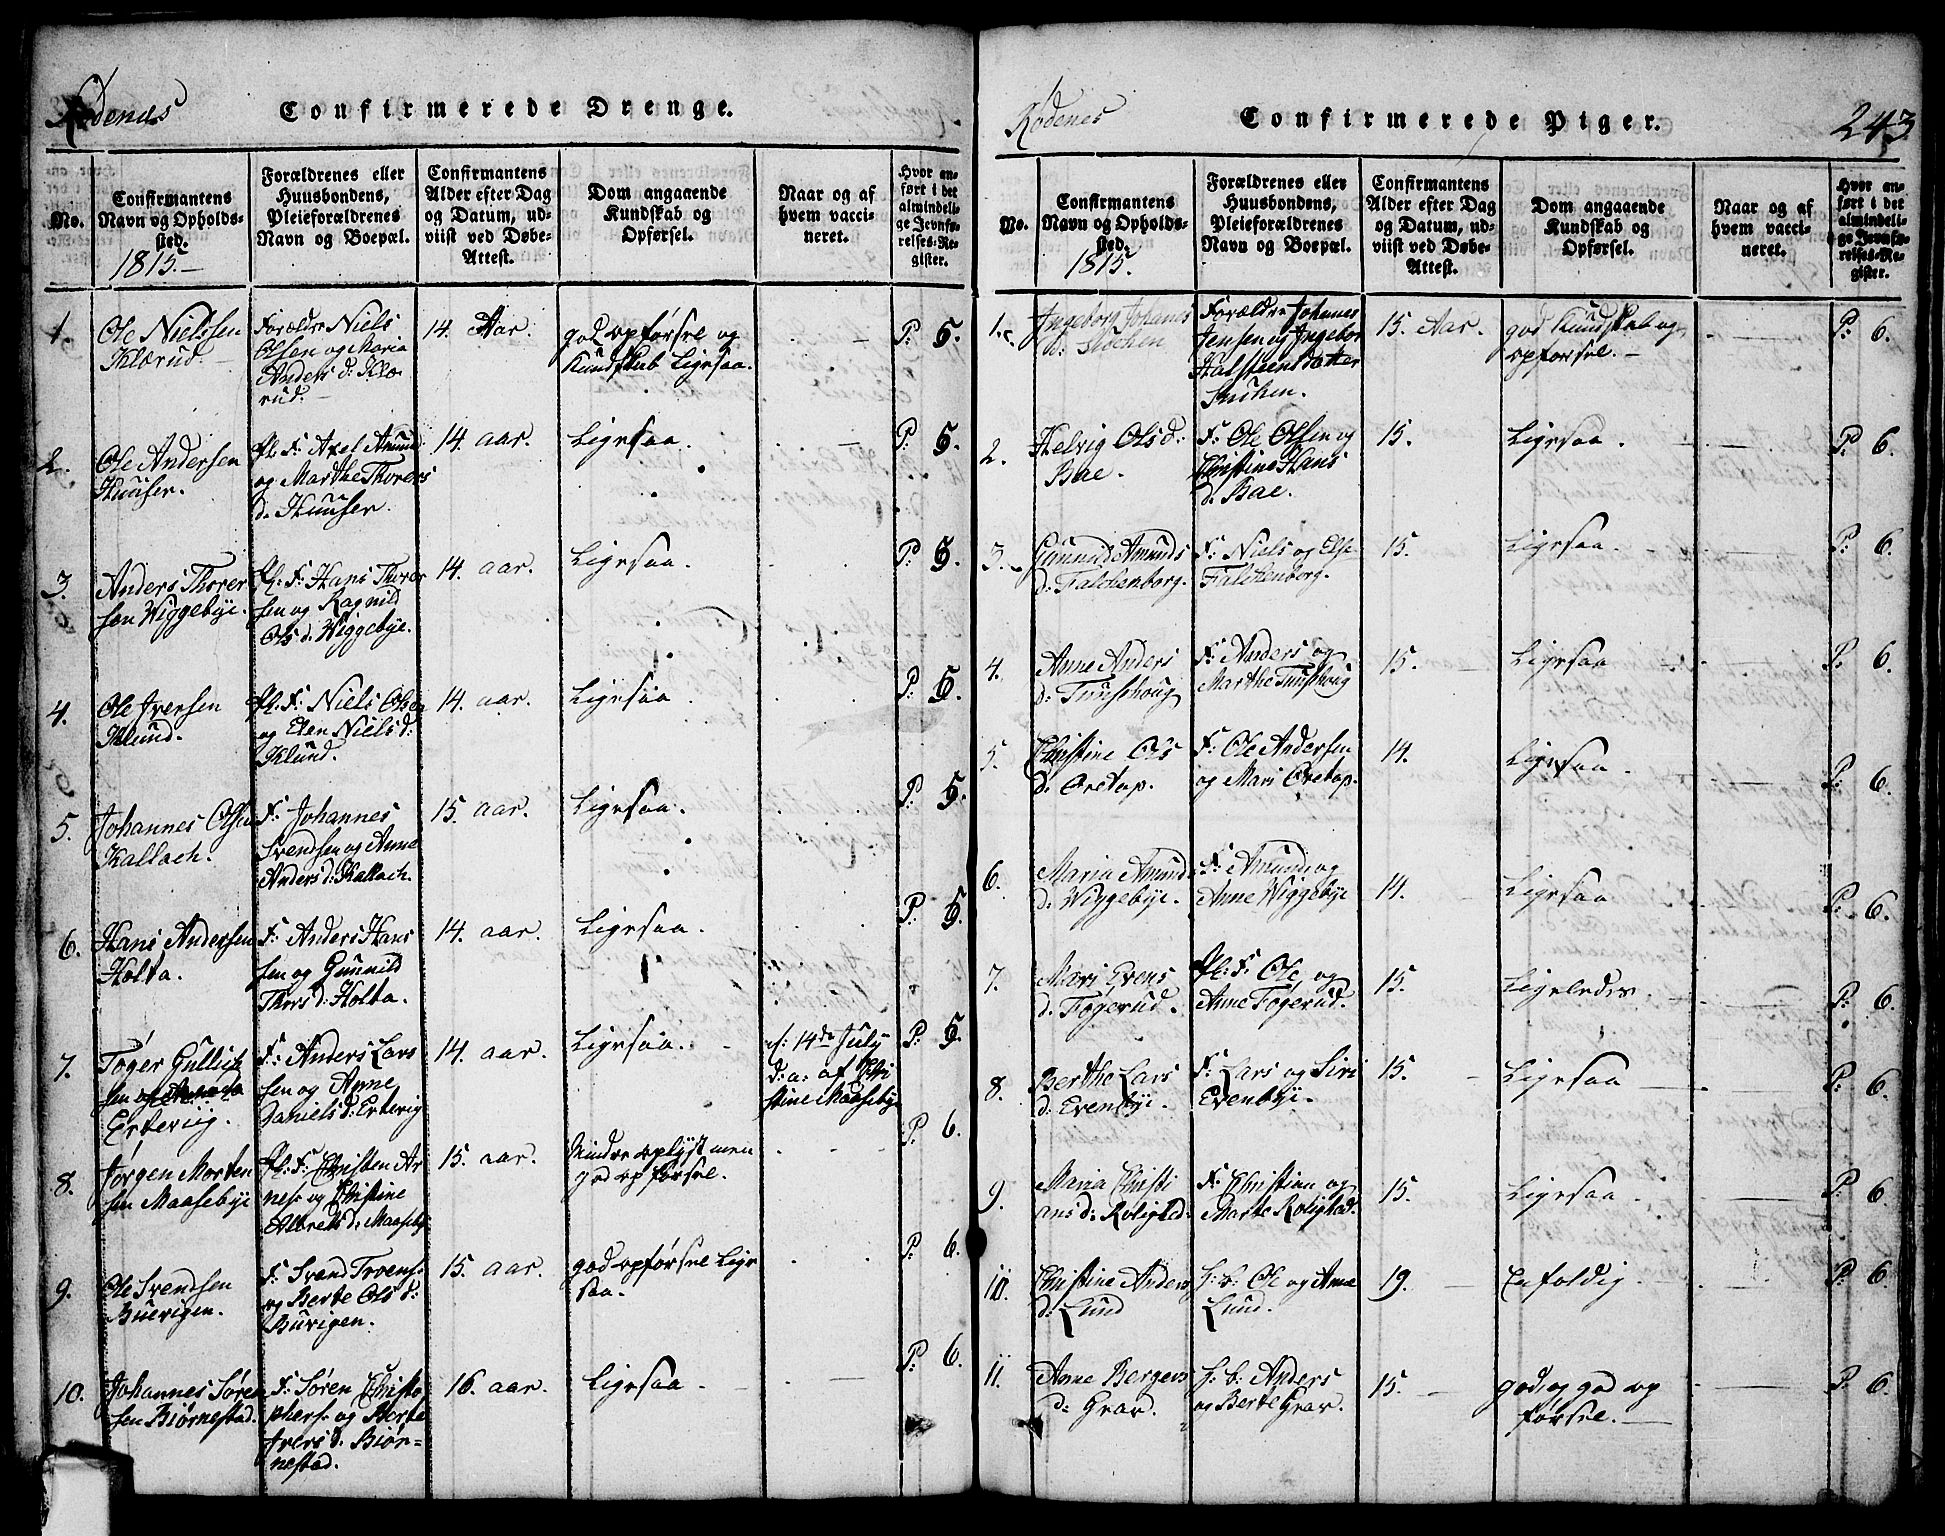 Rødenæs
Confirmerede Drenge.
No.
Confirmantens
Navn og Opholds-
sted.
1815.
Forældrenes eller
Huusbondens,
Pleieforældrenes
Navn og Boepæl.
Confirmantens
Alder efter Dag
og Datum, ud-
viist ved Døbe-
Attest.
Dom angaaende
Kundskab og
Opførsel.
Naar og af
hvem vacci-
neret.
Hvor an-
ført i det
almindeli-
ge Jevnfø-
relses-Re-
gister.
1.
Ole Nielssen
Klærud.
Forældre Niels
Olsen og Maria
Anders d: Klæ-
rud.
14. Aar.
god opførsel og
Kundskab Ligesaa.
P: 5.
2.
Ole Andersen
Huuser.
Pl. F: Axel Amund
og Marthe Thorers
d. Huuser.
14 aar.
Ligesaa.
P: 5.
3.
Anders Thorer
sen Wiggebye.
Pl. F: Hans Thorer
sen og Ragnild
Ols d. Wiggebye.
14 aar.
Ligesaa.
P: 5.
4.
Ole Iversen
Klund.
Pl. F: Niels Olsen
og Elen Niels d:
Klund.
14. aar.
Ligesaa
P: 5.
5.
Johannes Olsen
Kallach.
F: Johannes
Svendsen og Anne
Anders d: Kallach.
15. aar.
Ligesaa.
P: 5.
6.
Hans Andersen
Holta.
F: Anders Hans
sen og Gunnild
Thors d: Holta.
14. aar.
Ligesaa.
P: 5.
7.
Toger Gullich
sen
Ertevig.
F: Anders Lars
sen og Anne
Daniels d: Ertevig
14. aar.
Ligesaa.
14de July
d: a: af Chri
stine Maasebye
P: 5.
8.
Jørgen Morten
sen Maasebye
Pl: F: Christen Ar
nes. og Christine
Albrets d: Maaseby
15. aar.
Mindre oplyst men
god opførsel.
P: 6.
9.
Ole Svendsen
Buerigen.
F: Svend Troens.
og Berte Ols d:
Burigen.
15. aar.
god opførsel Lige
saa.
P: 6.
10.
Johannes Søren
sen Biørnestad.
F: Søren Christo
phers. og Berte
Ivers d. Biør-
nestad.
16. aar.
Ligesaa
P: 6.
Rødenes
Confirmerede Piger.
243
No.
Confirmantens
Navn og Opholds-
sted.
1815.
Forældrenes eller
Huusbondens,
Pleieforældrenes
Navn og Boepæl.
Confirmantens
Alder efter Dag
og Datum, ud-
viist ved Døbe-
Attest.
Dom angaaende
Kundskab og
Opførsel.
Naar og af
hvem vacci-
neret.
Hvor an-
ført i det
almindeli-
ge Jevnfø-
relses-Re-
gister.
1.
Ingeborg Johanes
d:
Forældre Johannes
Jensen og Ingebor
Halsteens datter
15. Aar.
god Kundskab og
opførsel.
P: 6.
2.
Helvig Ols d:
Bae.
F: Ole Olsen og
Christine Hans
d. Bae.
15.
Ligesaa.
P: 6.
3.
Gunnild Amunds
d: Falchenborg.
F: Niels og Else
Falchenborg.
15.
Ligesaa.
P: 6.
4.
Anne Anders
d: Tuusehoug
F: Anders og
Marthe Tuusehoug
15.
Ligesaa
P: 6.
5.
Christine Ols
d. Oretop.
F: Ole Andersen
og Mari Oretop.
14.
Ligesaa
P: 6.
6.
Maria Amund
d. Wiggebye.
F: Amund og
Anne Wiggebye
14.
Ligesaa
P: 6.
7.
Mari Evens
d. Fogerud.
Pl: F: Ole og
Anne Fogerud.
15.
Ligeledes.
P: 6.
8.
Berthe Lars
d: Evenbye.
F: Lars og Siri
Evenbye.
15.
Ligesaa
P: 6.
9.
Maria Christi
ans d: Rolighed.
F: Christian og
Marte Rolighed.
15.
Ligesaa
P: 6
10.
Christine Anders
d: Lund
H: b: Ole og Anne
Lund.
19.
Enfoldig
P: 6
11.
Anne Bergers
d: Grav.
H. b: Anders
og Berte Grav.
15.
god, og god op
førsel.
P: 6.